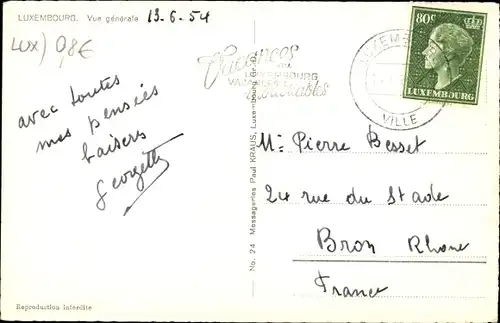 LUXEMBOURG. Vue générale 13-6-54
LUX) 0,8€
avec toutes
mes pensées
baisers
Georgette
Vacances
au
LUXEMBOURG
VACANCES
80c
LUXEMBOURG
VILLE
No. 24 Messageries Paul KRAUS, Luxembourg
Mr Pierre Besset
24 rue du Stade
Bron Rhone
France
Reproduction interdite